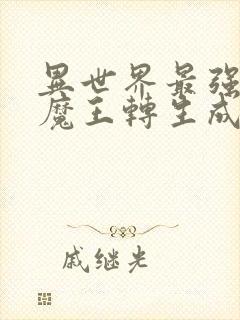 異世界最强
魔王轉生成
戚继光